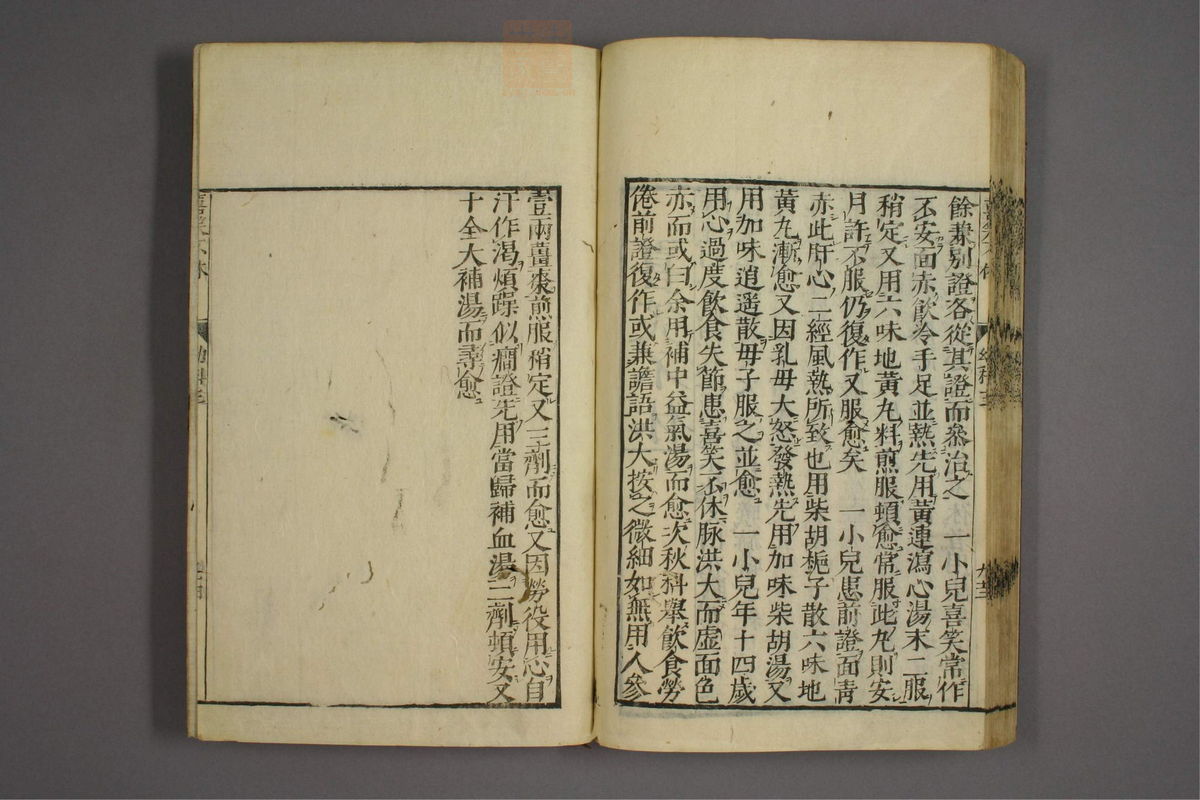 餘兼別證各從其證而參治之　一小兒喜笑常作
不安面赤飲冷手足並熱先用黃連瀉心湯末二服
稍定又用六味地黃丸料煎服頓愈常服此丸則安
月許不服仍復作又服愈矣　一小兒患前證面青
赤此肝心二經風熱所致也用柴胡梔子散六味地
黃丸漸愈又因乳母大怒發熱先用加味柴胡湯又
用加味逍遥散母子服之並愈　一小兒年十四歲
用心過度飲食失節患喜笑不休脉洪大而虛面色
赤而或白余用補中益氣湯而愈次秋科舉飲食勞
倦前證復作或兼譫語洪大按之微細如無用人參
壹兩薑棗煎服稍定又三劑而愈又因勞役用心自
汗作渴煩躁似癎證先用當歸補血湯二劑頓安又
十全大補湯而尋愈